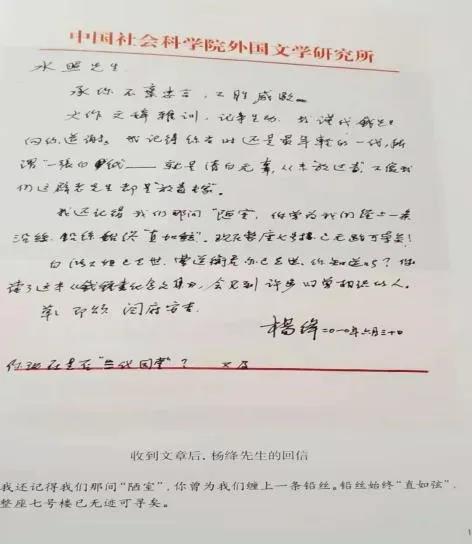 中国社会科学院外国文学研究所
水照先生
承你不弃老言，不胜感愧。
大作文辞雅训，记事生动，我谨代钱先生
向你道谢。我记得你当时还是最年轻的一代，所
谓"一张白纸——就是清白无辜，从未放过毒，不像我
们这辈老先生都是"放毒家"。
我还记得我们那间"陋室"，你曾为我们缠上一条
铅丝。铅丝始终"直如弦"。现在整座七号楼已无迹可寻矣！
已去世，你知道吗？你
读了这本《钱锺书纪念文集》，会见到许多旧曾相识的人。
草此即颂 阖府安吉
杨绛 二〇一〇年六月三十日
你现在是否"当代国学"？ 又及
收到文章后，杨绛先生的回信
我还记得我们那间"陋室"，你曾为我们缠上一条铅丝。铅丝始终"直如弦"，
整座七号楼已无迹可寻矣。
1